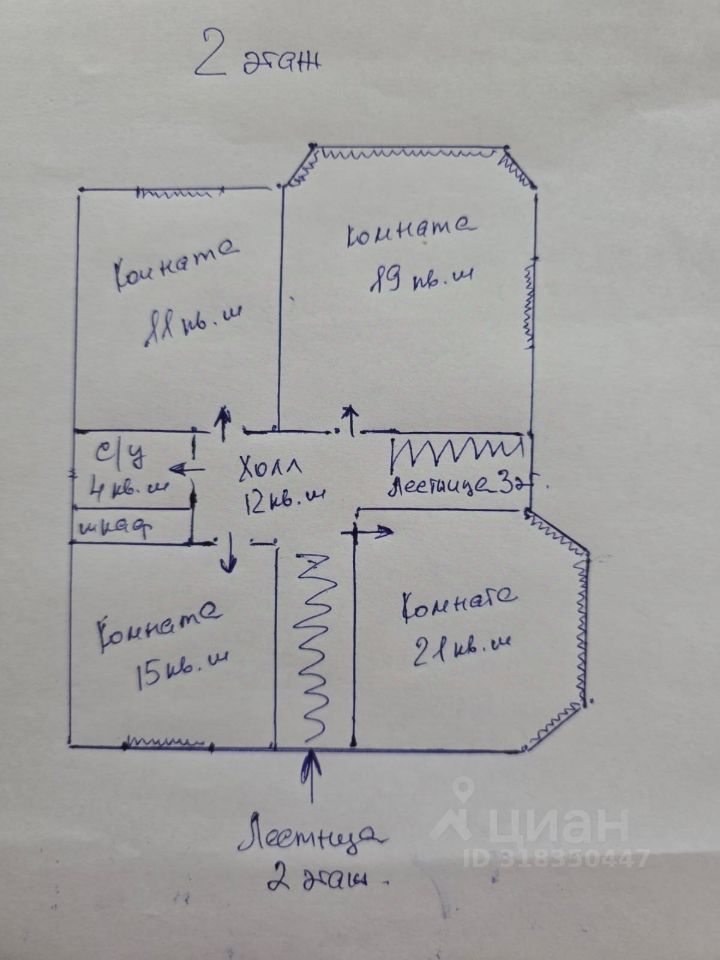 2 этаж
Комната
19 кв.м
Комната
11 кв.м
с/у
4 кв.м
шкаф
Холл
12 кв.м
Лестница 3э
Комната
15 кв.м
Комната
21 кв.м
Лестница
2 этаж.
циан
ID 318350447